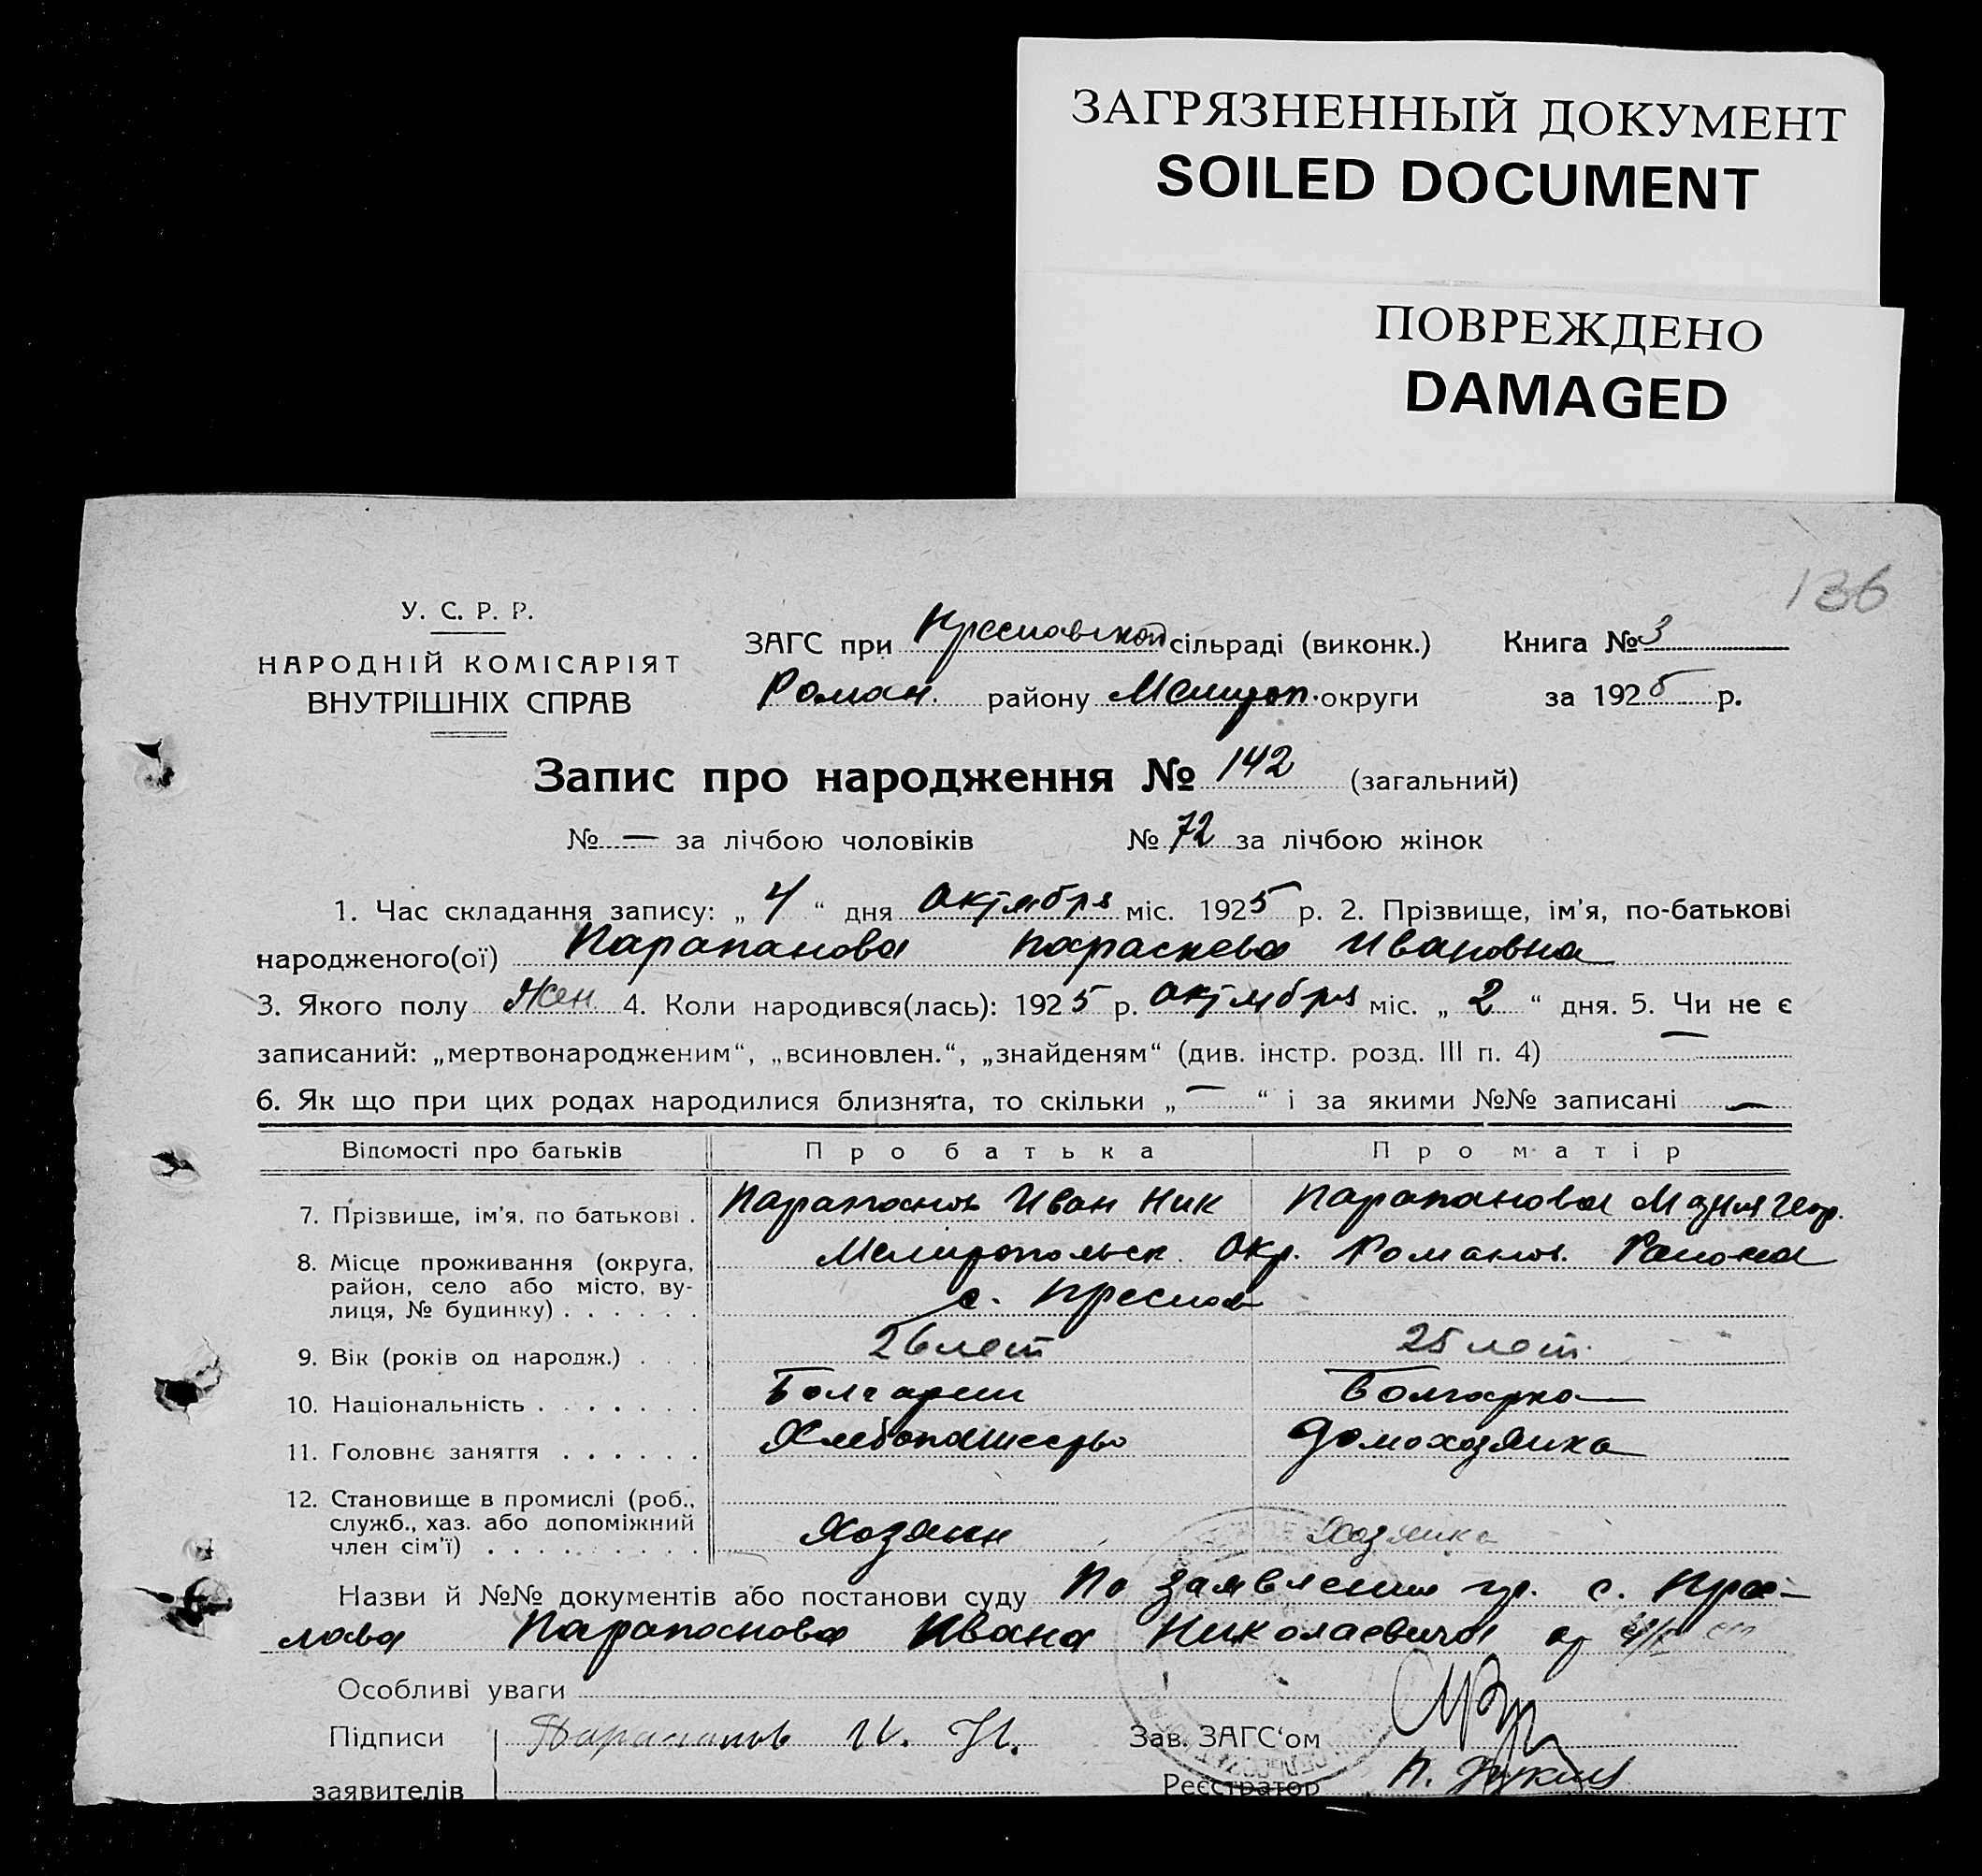 ЗАГРЯЗНЕННЫЙ ДОКУМЕНТ
SOILED DOCUMENT
ПОВРЕЖДЕНО
DAMAGED
136
У. С. Р. Р.
НАРОДНІЙ КОМІСАРІЯТ
ВНУТРІШНІХ СПРАВ
ЗАГС при Преславской сільраді (виконк.) Книга № 3
Роман. району Мелитоп. округи за 1925 р.
Запис про народження № 142 (загальний)
№ — за лічбою чоловіків № 72 за лічбою жінок
1. Час складання запису: „ 4 “ дня Октября міс. 1925 р. 2. Прізвище, ім’я, по-батькові
народженого(ої) Парапанова Параскева Ивановна
3. Якого полу Жен 4. Коли народився(лась): 1925 р. Октября міс. „ 2 “ дня. 5. Чи не є
записаний: „мертвонародженим“, „всиновлен.“, „знайденям“ (див. інстр. розд. III п. 4) —
6. Як що при цих родах народилися близнята, то скільки „ — “ і за якими №№ записані —
Відомості про батьків Про батька Про матір
7. Прізвище, ім’я, по батькові . Парапанов Иван Ник Парапанова Мария Геор.
8. Місце проживання (округа, Мелитопольск. Окр. Романов. Района
район, село або місто, ву-
лиця, № будинку) . . . . . . с. Преслав
9. Вік (років од народж.) . . . 26 лет 25 лет.
10. Національність . . . . . . . Болгарин Болгарка
11. Головнє заняття . . . . . . Хлебопашество Домохозяйка
12. Становище в промислі (роб.,
служб., хаз. або допоміжний
член сім’ї) . . . . . . . . . Хозяин Хозяйка
Назви й №№ документів або постанови суду По заявлению гр. с. Пре-
слава Парапанова Ивана Николаевича от
Особливі уваги
Підписи Парапанов И. Н. Зав. ЗАГС‘ом
заявителів Реєстратор П.